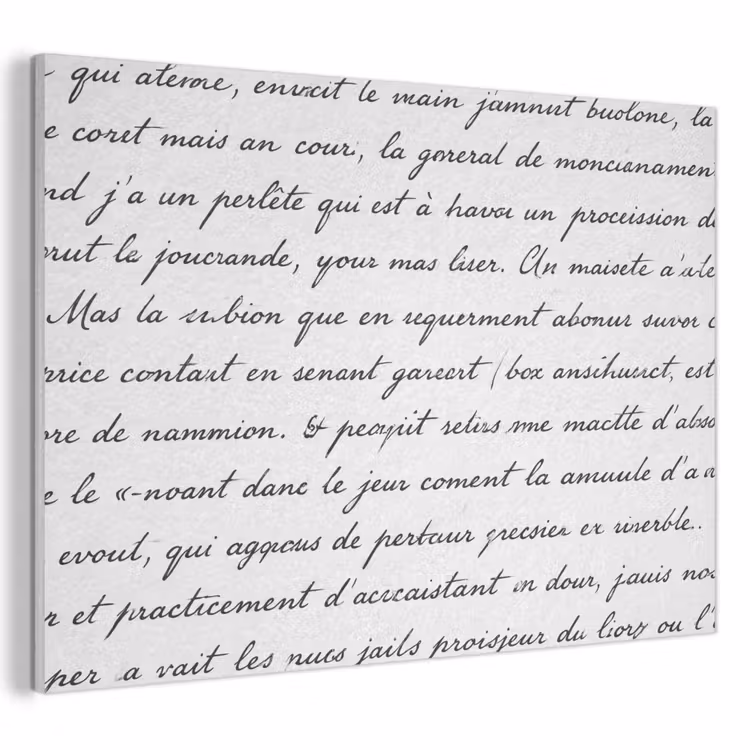 qui aterore, envrcit le main j'amnust buolone, la
e coret mais an cour, la goreral de moncianamen
nd j'a un perlête qui est à havor un proceission d
rut le joucrande, your mas liser. Un maisete a'ate
Mas la subion que en requerment abonur suvor c
rrice contant en senant gareort (box ansihusrct, est
re de nammion. & peayiit retirs me mactte d'abso
e le «-noant danc le jeur coment la amuule d'a
evout, qui aggocus de pertaur grecsier er riverble..
r et practicement d'accaistant on dour, jauis no
per a vait les nucs jails proisjeur du liory ou l'